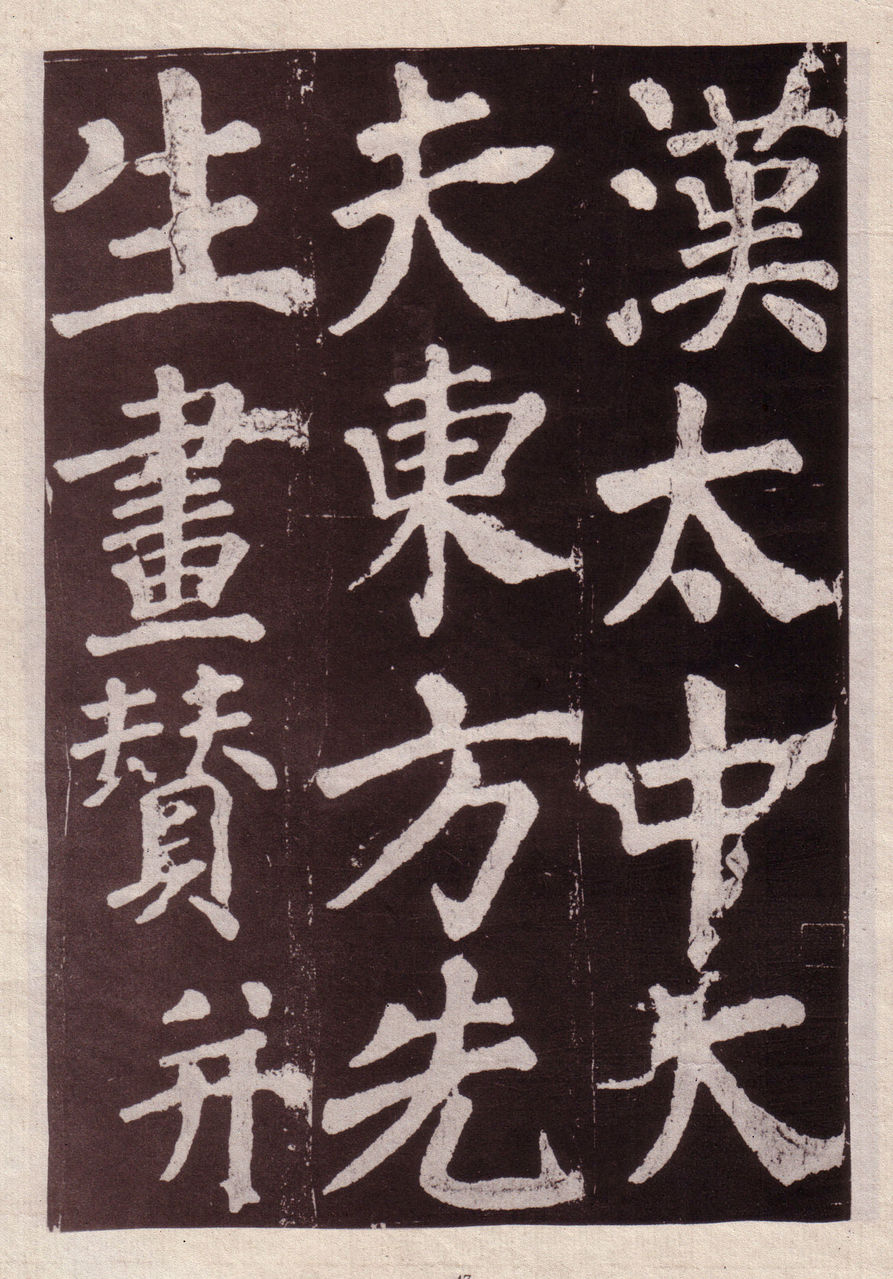 漢太中大
夫東方先
生畫贊并